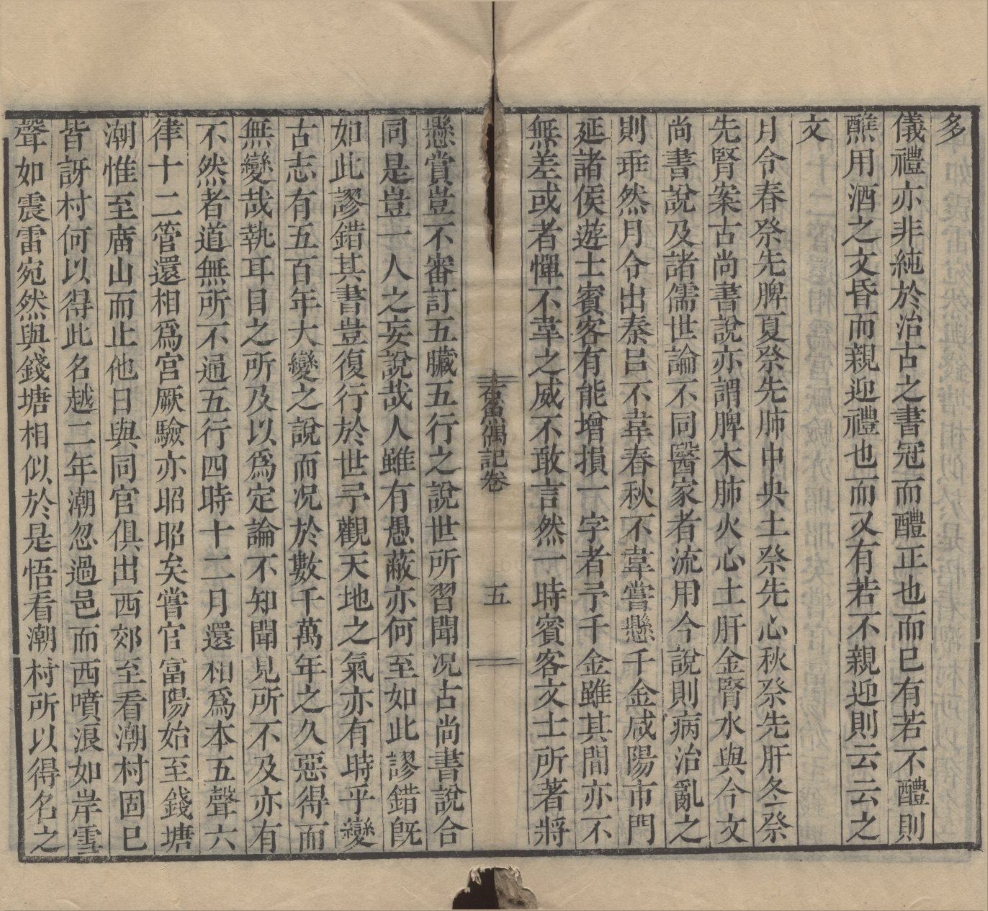 多
儀禮亦非純於治古之書冠而醴正也而已有若不醴則
醮用酒之文昏而親迎禮也而又有若不親迎則云云之
文
月令春祭先脾夏祭先肺中央土祭先心秋祭先肝冬祭
先腎案古尚書說亦謂脾木肺火心土肝金腎水與今文
尚書說及諸儒世論不同醫家者流用今說則病治亂之
則乖然月令出秦呂不韋春秋不韋嘗懸千金咸陽市門
延諸侯遊士賓客有能增損一字者予千金雖其間亦不
無差或者憚不韋之威不敢言然一時賓客文士所著將
石魚偶記卷
五
懸賞豈不審訂五臟五行之說世所習聞况古尚書說合
同是豈一人之妄說哉人雖有愚蔽亦何至如此謬錯旣
如此謬錯其書豈復行於世乎觀天地之氣亦有時乎變
古志有五百年大變之說而况於數千萬年之久惡得而
無變哉執耳目之所及以爲定論不知聞見所不及亦有
不然者道無所不通五行四時十二月還相爲本五聲六
律十二管還相爲宮厥驗亦昭昭矣嘗官富陽始至錢塘
潮惟至廟山而止他日與同官俱出西郊至看潮村固已
皆訝村何以得此名越二年潮忽過邑而西噴浪如岸雪
聲如震雷宛然與錢塘相似於是悟看潮村所以得名之